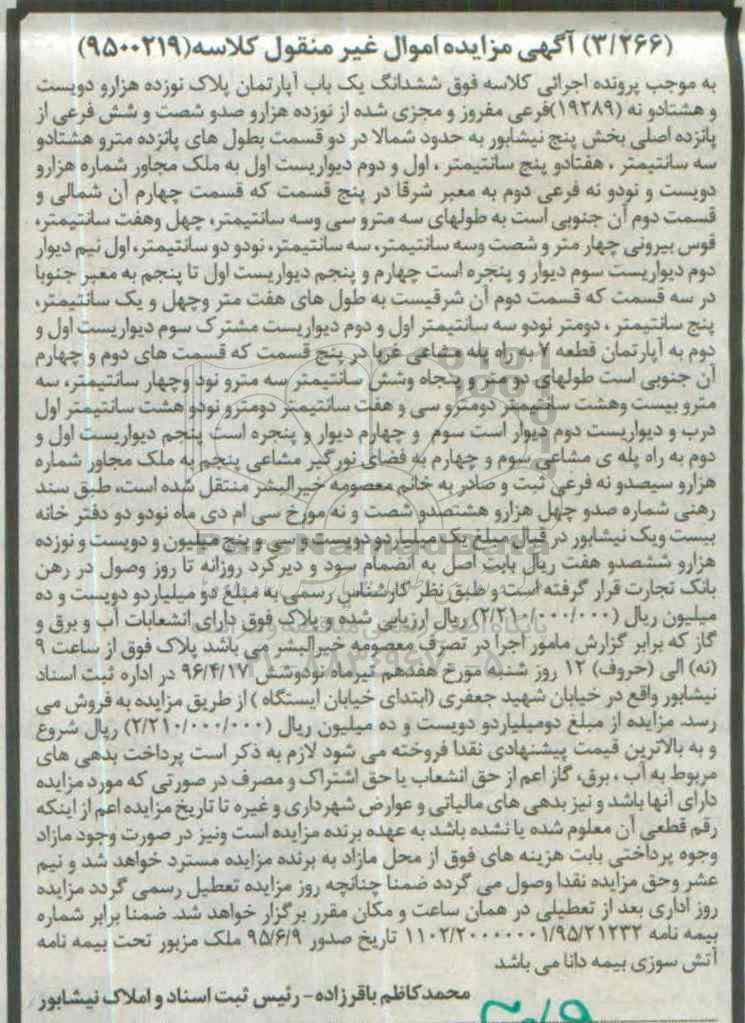 (۳/۲۶۶) آگهی مزایده اموال غیر منقول کلاسه(۹۵۰۰۲۱۹)
به موجب پرونده اجرائی کلاسه فوق ششدانگ یک باب آپارتمان پلاک نوزده هزارو دویست
و هشتادو نه (۱۹۲۸۹)فرعی مفروز و مجزی شده از نوزده هزارو صدو شصت و شش فرعی از
پانزده اصلی بخش پنج نیشابور به حدود شمالا در دو قسمت بطول های پانزده مترو هشتادو
سه سانتیمتر ، هفتادو پنج سانتیمتر ، اول و دوم دیواریست اول به ملک مجاور شماره هزارو
دویست و نودو نه فرعی دوم به معبر شرقا در پنج قسمت که قسمت چهارم آن شمالی و
قسمت دوم آن جنوبی است به طولهای سه مترو سی وسه سانتیمتر، چهل وهفت سانتیمتر،
قوس بیرونی چهار متر و شصت وسه سانتیمتر، سه سانتیمتر، نودو دو سانتیمتر، اول نیم دیوار
دوم دیواریست سوم دیوار و پنجره است چهارم و پنجم دیواریست اول تا پنجم به معبر جنوبا
در سه قسمت که قسمت دوم آن شرقیست به طول های هفت متر وچهل و یک سانتیمتر،
پنج سانتیمتر ، دومتر نودو سه سانتیمتر اول و دوم دیواریست مشترک سوم دیواریست اول و
دوم به آپارتمان قطعه ۷ به راه پله مشاعی غربا در پنج قسمت که قسمت های دوم و چهارم
آن جنوبی است طولهای دو متر و پنجاه وشش سانتیمتر سه مترو نود وچهار سانتیمتر، سه
مترو بیست وهشت سانتیمتر دومترو سی و هفت سانتیمتر دومترو نودو هشت سانتیمتر اول
درب و دیواریست دوم دیوار است سوم و چهارم دیوار و پنجره است پنجم دیواریست اول و
دوم به راه پله ی مشاعی سوم و چهارم به فضای نورگیر مشاعی پنجم به ملک مجاور شماره
هزارو سیصدو نه فرعی ثبت و صادر به خانم معصومه خیرالبشر منتقل شده است، طبق سند
رهنی شماره صدو چهل هزارو هشتصدو شصت و نه مورخ سی ام دی ماه نودو دو دفتر خانه
بیست ویک نیشابور در قبال مبلغ یک میلیاردو دویست و سی و پنج میلیون و دویست و نوزده
هزارو ششصدو هفت ریال بابت اصل به انضمام سود و دیرکرد روزانه تا روز وصول در رهن
بانک تجارت قرار گرفته است و طبق نظر کارشناس رسمی به مبلغ دو میلیاردو دویست و ده
میلیون ریال (۲/۲۱۰/۰۰۰/۰۰۰) ریال ارزیابی شده و پلاک فوق دارای انشعابات آب و برق و
گاز که برابر گزارش مامور اجرا در تصرف معصومه خیرالبشر می باشد پلاک فوق از ساعت ۹
(نه) الی (حروف) ۱۲ روز شنبه مورخ هفدهم تیرماه نودوشش ۹۶/۴/۱۷ در اداره ثبت اسناد
نیشابور واقع در خیابان شهید جعفری (ابتدای خیابان ایستگاه ) از طریق مزایده به فروش می
رسد. مزایده از مبلغ دومیلیاردو دویست و ده میلیون ریال (۲/۲۱۰/۰۰۰/۰۰۰) ریال شروع
و به بالاترین قیمت پیشنهادی نقدا فروخته می شود لازم به ذکر است پرداخت بدهی های
مربوط به آب ، برق، گاز اعم از حق انشعاب یا حق اشتراک و مصرف در صورتی که مورد مزایده
دارای آنها باشد و نیز بدهی های مالیاتی و عوارض شهرداری و غیره تا تاریخ مزایده اعم از اینکه
رقم قطعی آن معلوم شده یا نشده باشد به عهده برنده مزایده است ونیز در صورت وجود مازاد
وجوه پرداختی بابت هزینه های فوق از محل مازاد به برنده مزایده مسترد خواهد شد و نیم
عشر وحق مزایده نقدا وصول می گردد ضمنا چنانچه روز مزایده تعطیل رسمی گردد مزایده
روز اداری بعد از تعطیلی در همان ساعت و مکان مقرر برگزار خواهد شد. ضمنا برابر شماره
بیمه نامه ۱۱۰۲/۲۰۰۰۰۰۰۱/۹۵/۲۱۲۳۲ تاریخ صدور ۹۵/۶/۹ ملک مزبور تحت بیمه نامه
آتش سوزی بیمه دانا می باشد
محمدکاظم باقرزاده - رئیس ثبت اسناد و املاک نیشابور